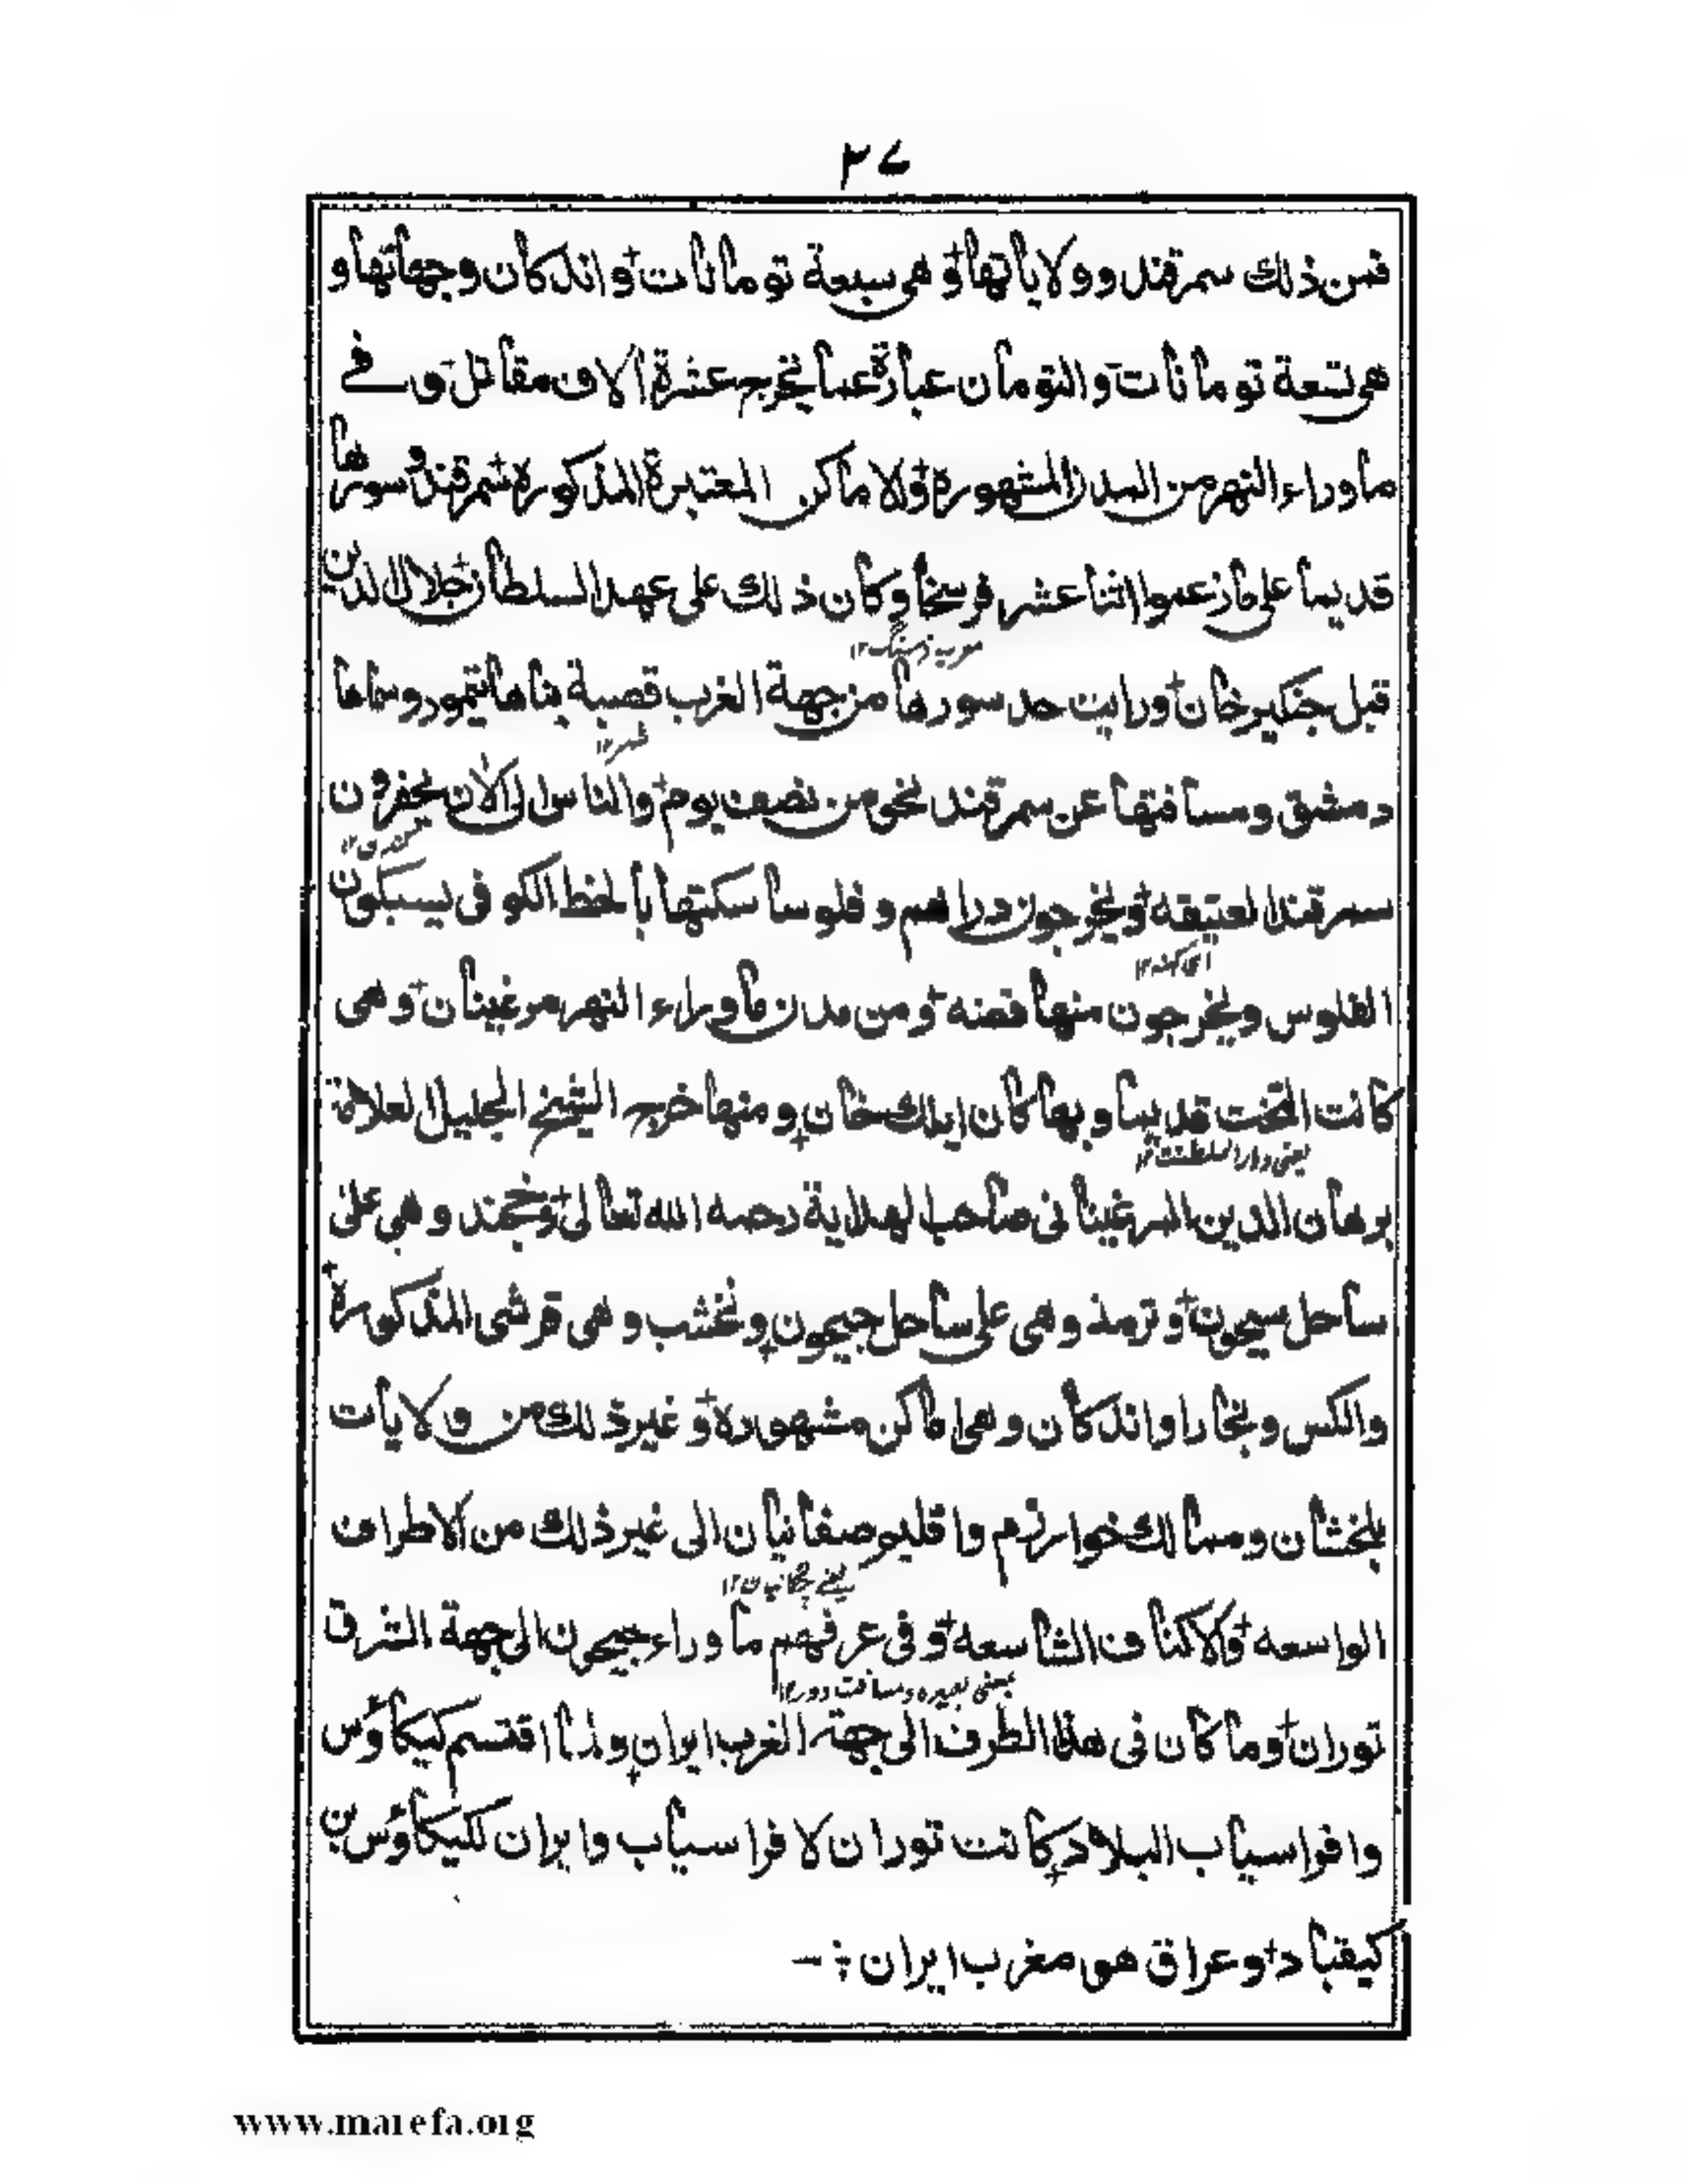 ٢٧
فمن ذلك سمرقند وولاياتها وهى سبعة تومانات واندكان وجهاتها و
هى تسعة تومانات والتومان عبارة عما يخرج عشرة الاف مقاتل وفى
ماوراء النهر من المدن المشهورة والاماكن المعتبرة المذكوره سمرقند وسورها
قديما على ما زعموا اثنا عشر فرسخا وكان ذلك على عهد السلطان جلال الدين
معرب فرسنگ١٢
قبل جنكيز خان ورايت حد سورها من جهة الغرب قصبة بناها تيمور وسماها
شهر١٢
دمشق ومسافتها عن سمرقند نحو من نصف يوم والناس الى الآن يحفرون
سمرقند العتيقه ويخرجون دراهم وفلوسا سكتها بالخط الكوفى يسبكون
اى كهنه١٢
الفلوس ويخرجون منها فضه ومن مدن ماوراء النهر مرغينان وهى
كانت التخت قديما وبها كان ايلك خان ومنها خرج الشيخ الجليل العلامة
يعنى دار السلطنت١٢
برهان الدين المرغينانى صاحب الهداية رحمه الله تعالى وخجند وهى على
ساحل سيحون وترمذ وهى على ساحل جيحون ونخشب وهى قرشى المذكورة
والكس وبخارا واندكان وهى اماكن مشهوره وغير ذلك من ولايات
بلخشان وممالك خوارزم واقليم صغانيان الى غير ذلك من الاطراف
يعنى چغانيان١٢
الواسعه والاكناف الشاسعه وفى عرفهم ماوراء جيحون الى جهة الشرق
يعنى بعيده ومسافت دور١٢
توران وما كان فى هذا الطرف الى جهة الغرب ايران ولما اقتسم كيكاؤس
وافراسياب البلاد كانت توران لافراسياب وايران لكيكاؤس بن
كيقباد وعراق هو مغرب ايران ؞ ـ
www.marefa.org